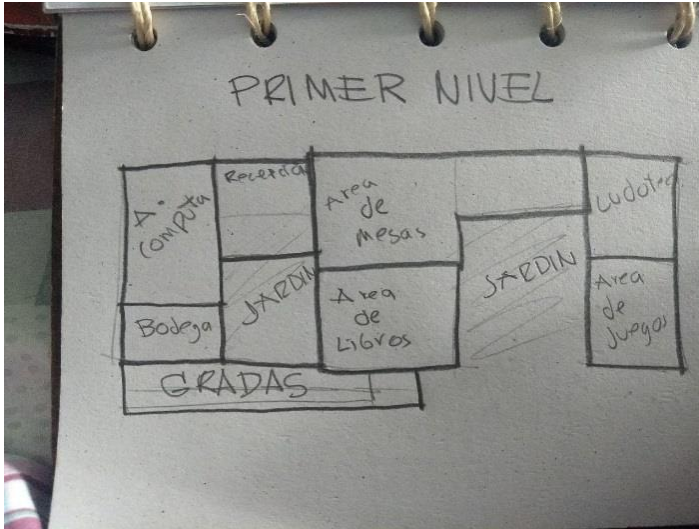 PRIMER NIVEL
A.
Computa
Recepcion
Area
de
mesas
Ludoteca
JARDIN
JARDIN
Bodega
Area
de
Libros
Area
de
Juegos
GRADAS